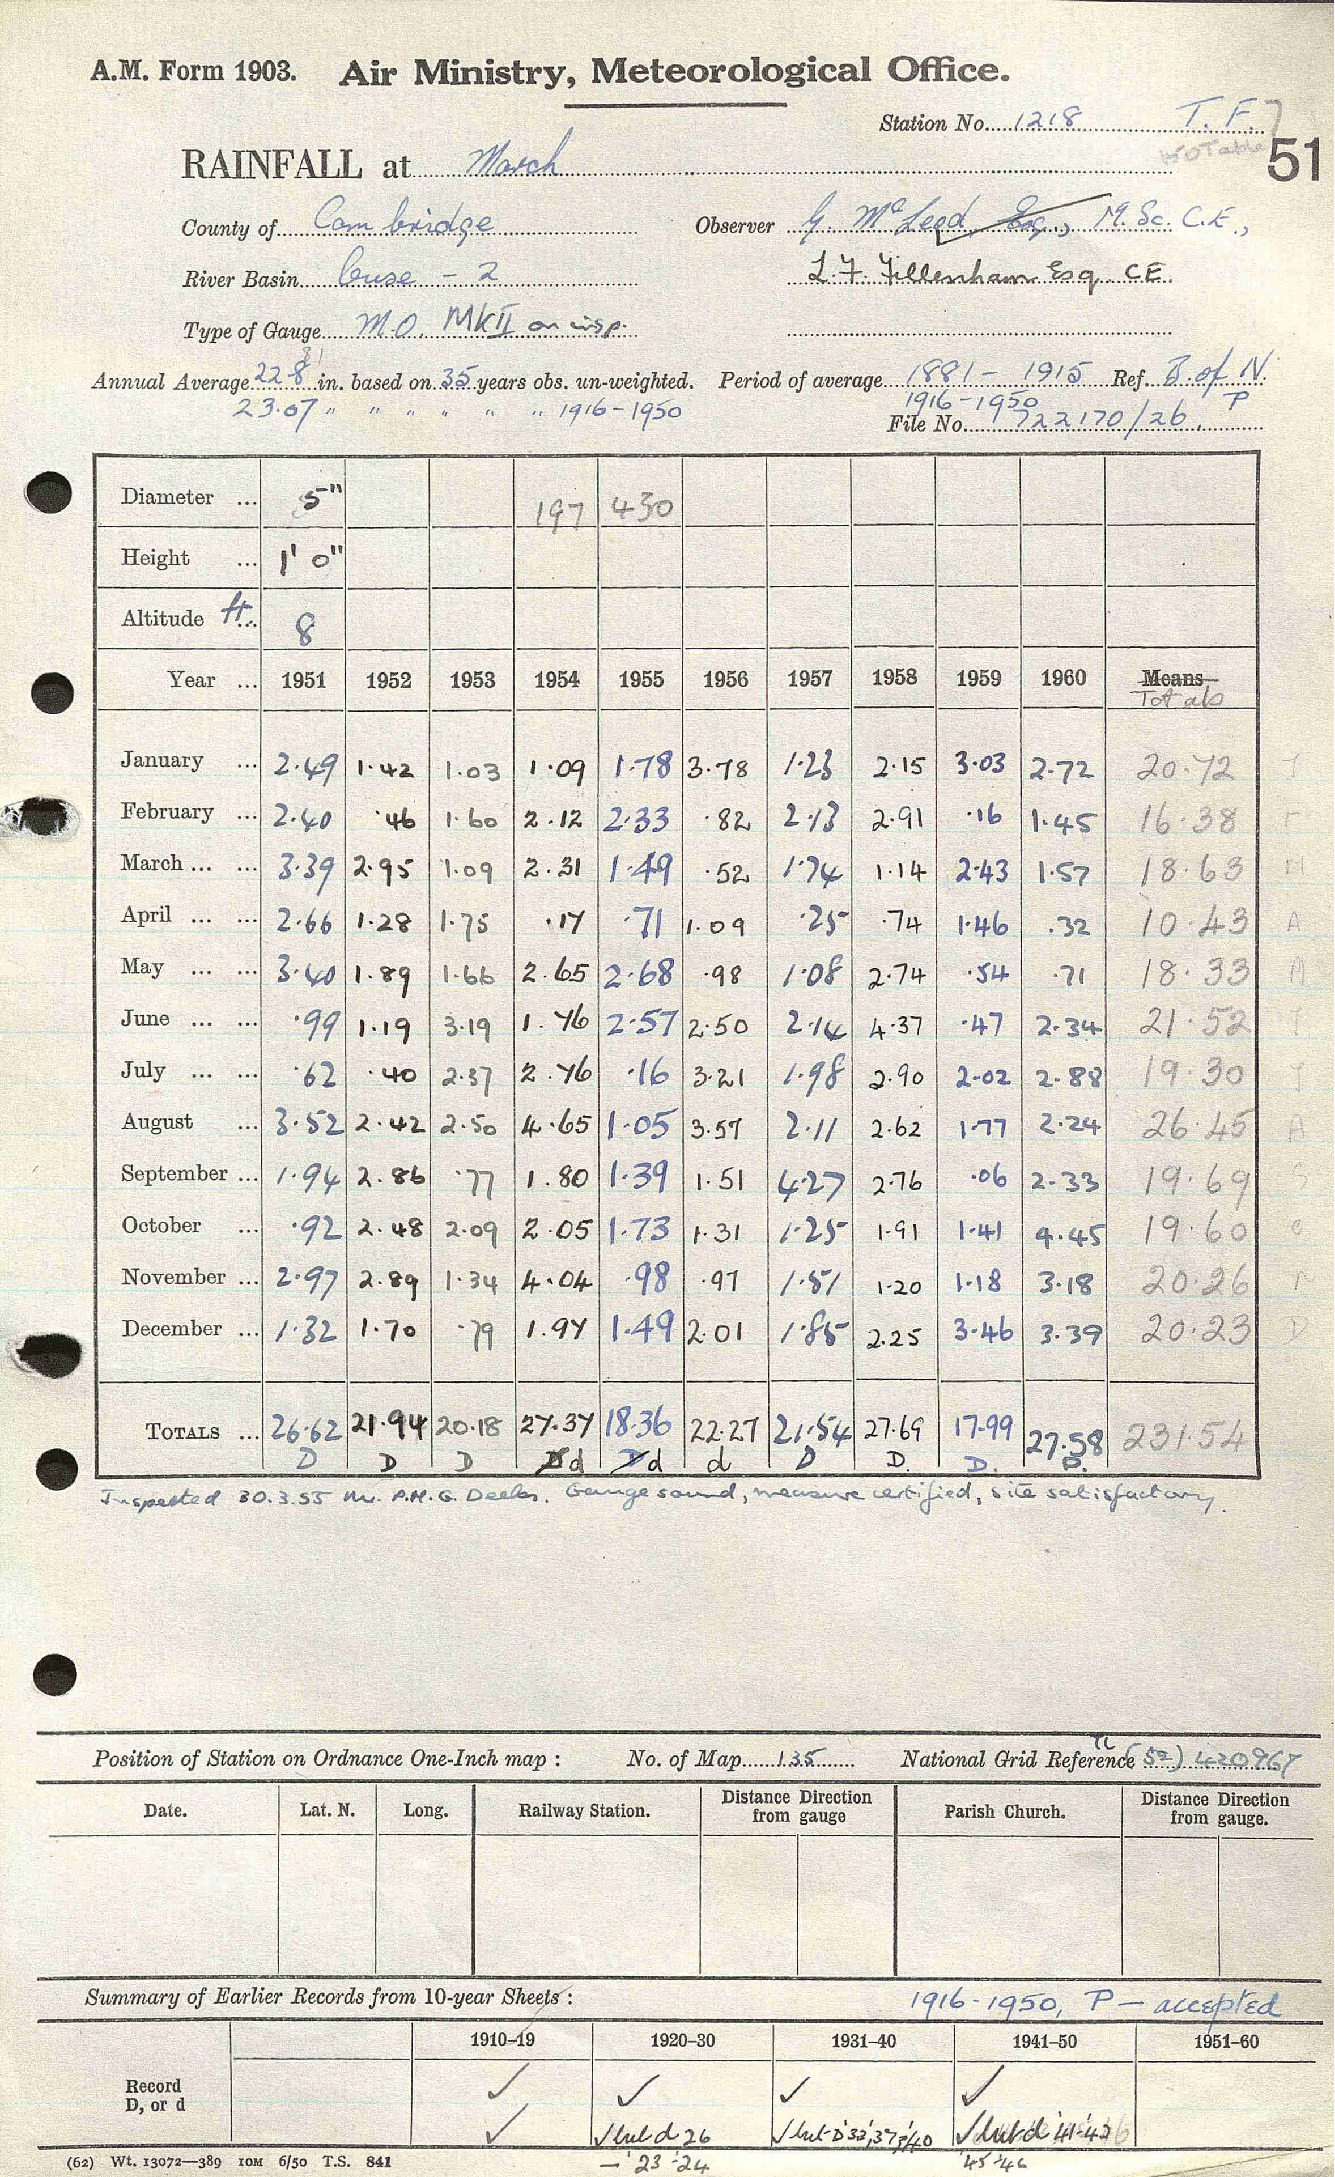 A.M. Form 1903. Air Ministry, Meteorological Office.
Station No. 1218 T.F. 7
51
RAINFALL at March
County of Cambridge Observer G. McLeod Esq., M.Sc. C.E.,
River Basin Ouse - 2 L.F. Fillenham Esq CE.
Type of Gauge M.O. MKII on insp.
Annual Average 22.8 in. based on 35 years obs. un-weighted. Period of average 1881 - 1915 Ref. B. of N.
23.07 " " " " " " 1916-1950 1916-1950 P
File No. 722170/26.
Diameter ... 5" 197 430
Height ... 1' 0"
Altitude ft... 8
Year ... 1951 1952 1953 1954 1955 1956 1957 1958 1959 1960 Means
Totals
January ... 2.49 1.42 1.03 1.09 1.78 3.78 1.23 2.15 3.03 2.72 20.72 J
February ... 2.40 .46 1.60 2.12 2.33 .82 2.13 2.91 .16 1.45 16.38 F
March ... ... 3.39 2.95 1.09 2.31 1.49 .52 1.74 1.14 2.43 1.57 18.63 M
April ... ... 2.66 1.28 1.75 .17 .71 1.09 .25 .74 1.46 .32 10.43 A
May ... ... 3.40 1.89 1.66 2.65 2.68 .98 1.08 2.74 .54 .71 18.33 M
June ... ... .99 1.19 3.19 1.76 2.57 2.50 2.14 4.37 .47 2.34 21.52 J
July ... ... .62 .40 2.37 2.76 .16 3.21 1.98 2.90 2.02 2.88 19.30 J
August ... 3.52 2.42 2.50 4.65 1.05 3.57 2.11 2.62 1.77 2.24 26.45 A
September ... 1.94 2.86 .77 1.80 1.39 1.51 4.27 2.76 .06 2.33 19.69 S
October ... .92 2.48 2.09 2.05 1.73 1.31 1.25 1.91 1.41 4.45 19.60 O
November ... 2.97 2.89 1.34 4.04 .98 .97 1.51 1.20 1.18 3.18 20.26 N
December ... 1.32 1.70 .79 1.97 1.49 2.01 1.85 2.25 3.46 3.39 20.23 D
TOTALS ... 26.62 21.94 20.18 27.37 18.36 22.27 21.54 27.69 17.99 27.58 231.54
D D D D d D d d D D. D. D.
Inspected 30.3.55 Mr. P.M.G. Deeks. Gauge sound, measure certified, site satisfactory.
Position of Station on Ordnance One-Inch map : No. of Map 135 National Grid Reference TL (52) 420967
Date. Lat. N. Long. Railway Station. Distance Direction from gauge Parish Church. Distance Direction from gauge.
Summary of Earlier Records from 10-year Sheets : 1916-1950, P — accepted
1910–19 1920–30 1931–40 1941–50 1951–60
Record
D, or d ✓ ✓ ✓ ✓
✓ ✓ but d 26 ✓ but D '33, '37, '40 ✓ but d '41-'43
— '23-24 '45-46
(62) Wt. 13072—389 10M 6/50 T.S. 841